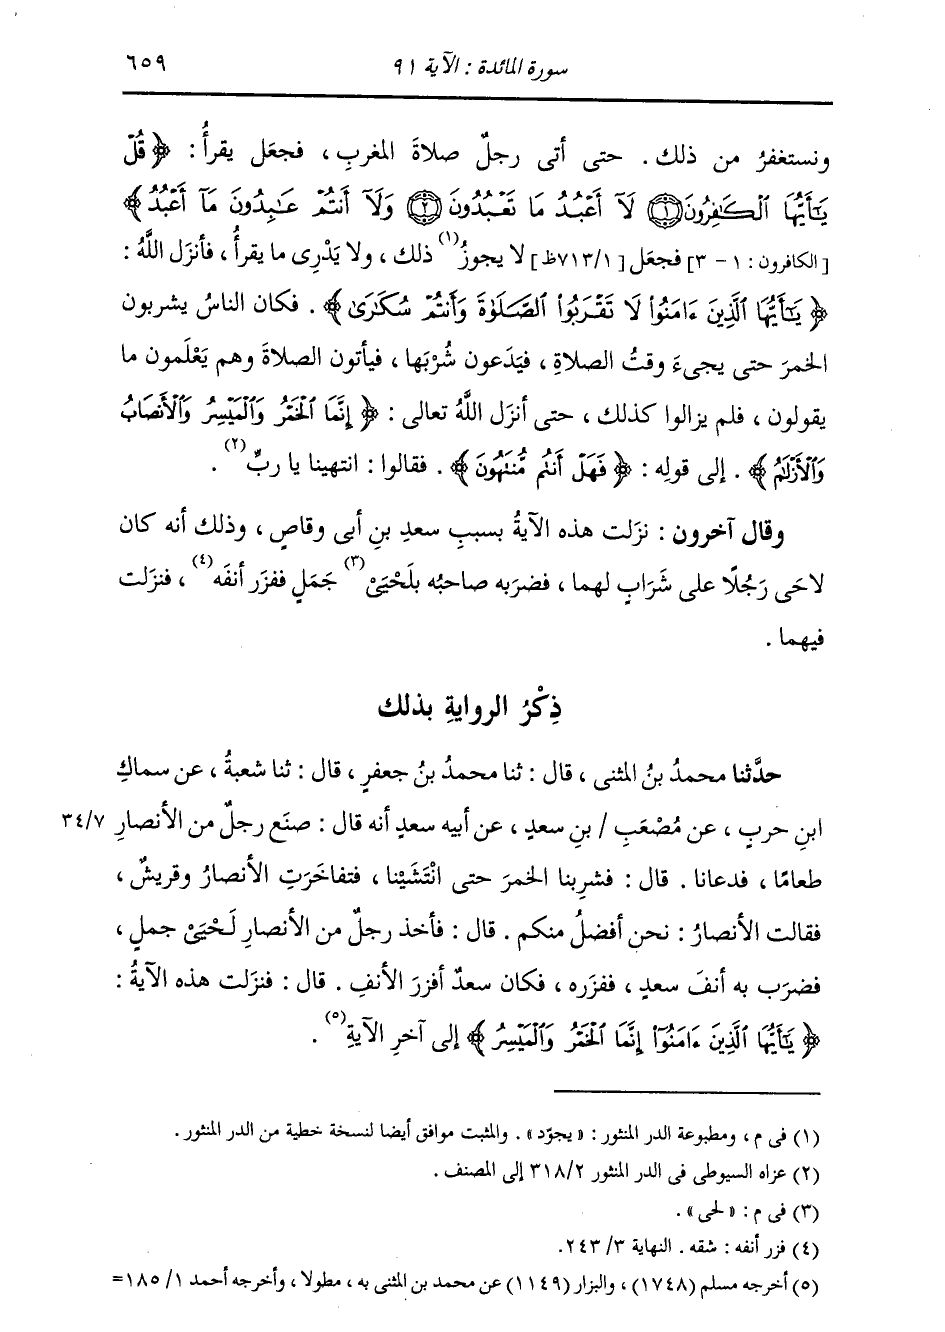 سورة المائدة : الآية ٩١ ٦٥٩
ونستغفرُ من ذلك . حتى أتى رجلٌ صلاةَ المغربِ ، فجعَل يقرأُ : ﴿ قُلْ
يَٰٓأَيُّهَا ٱلْكَٰفِرُونَ ۝١ لَآ أَعْبُدُ مَا تَعْبُدُونَ ۝٢ وَلَآ أَنتُمْ عَٰبِدُونَ مَآ أَعْبُدُ ﴾
[ الكافرون : ١ - ٣] فجعَل [ ٧١٣/١ظ ] لا يجوزُ(١) ذلك ، ولا يَدْرِى ما يقرأُ ، فأنزَل اللَّهُ :
﴿ يَٰٓأَيُّهَا ٱلَّذِينَ ءَامَنُوا۟ لَا تَقْرَبُوا۟ ٱلصَّلَوٰةَ وَأَنتُمْ سُكَٰرَىٰ ﴾ . فكان الناسُ يشربون
الخمرَ حتى يجىءَ وقتُ الصلاةِ ، فيَدَعون شُرْبَها ، فيأتون الصلاةَ وهم يَعْلَمون ما
يقولون ، فلم يزالوا كذلك ، حتى أنزَل اللَّهُ تعالى : ﴿ إِنَّمَا ٱلْخَمْرُ وَٱلْمَيْسِرُ وَٱلْأَنصَابُ
وَٱلْأَزْلَٰمُ ﴾ . إلى قولِه : ﴿ فَهَلْ أَنتُم مُّنتَهُونَ ﴾ . فقالوا : انتهينا يا ربِّ(٢) .
وقال آخرون : نزَلت هذه الآيةُ بسببِ سعدِ بنِ أبى وقاصٍ ، وذلك أنه كان
لاحَى رَجُلًا على شَرَابٍ لهما ، فضرَبه صاحبُه بلَحْيَىْ(٣) جَمَلٍ ففزَر أنفَه(٤) ، فنزَلت
فيهما .
ذِكْرُ الروايةِ بذلك
حدَّثنا محمدُ بنُ المثنى ، قال : ثنا محمدُ بنُ جعفرٍ ، قال : ثنا شعبةُ ، عن سماكِ
ابنِ حربٍ ، عن مُصْعَبِ / بنِ سعدٍ ، عن أبيه سعدٍ أنه قال : صنَع رجلٌ من الأنصارِ ٣٤/٧
طعامًا ، فدعانا . قال : فشرِبنا الخمرَ حتى انْتَشَيْنا ، فتفاخَرَتِ الأنصارُ وقريشٌ ،
فقالت الأنصارُ : نحن أفضلُ منكم . قال : فأخذ رجلٌ من الأنصارِ لَحْيَىْ جملٍ ،
فضرَب به أنفَ سعدٍ ، ففزَره ، فكان سعدٌ أفزرَ الأنفِ . قال : فنزَلت هذه الآيةُ :
﴿ يَٰٓأَيُّهَا ٱلَّذِينَ ءَامَنُوٓا۟ إِنَّمَا ٱلْخَمْرُ وَٱلْمَيْسِرُ ﴾ إلى آخرِ الآيةِ(٥) .
(١) فى م ، ومطبوعة الدر المنثور : « يجوّد » . والمثبت موافق أيضا لنسخة خطية من الدر المنثور .
(٢) عزاه السيوطى فى الدر المنثور ٣١٨/٢ إلى المصنف .
(٣) فى م : « لحى » .
(٤) فزر أنفه : شقه . النهاية ٣/ ٢٤٣.
(٥) أخرجه مسلم (١٧٤٨) ، والبزار (١١٤٩) عن محمد بن المثنى به ، مطولا ، وأخرجه أحمد ١/ ١٨٥=